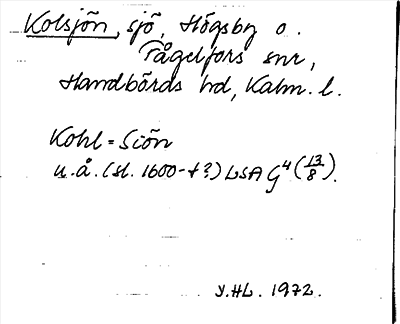 Kolsjön, sjö, Högsby o.
Fågelfors snr,
Handbörds hd, Kalm. l.
Kohl = Siön
u.å. (sl. 1600-t?) LSA G4 (13/8).
Y.HL. 1972.